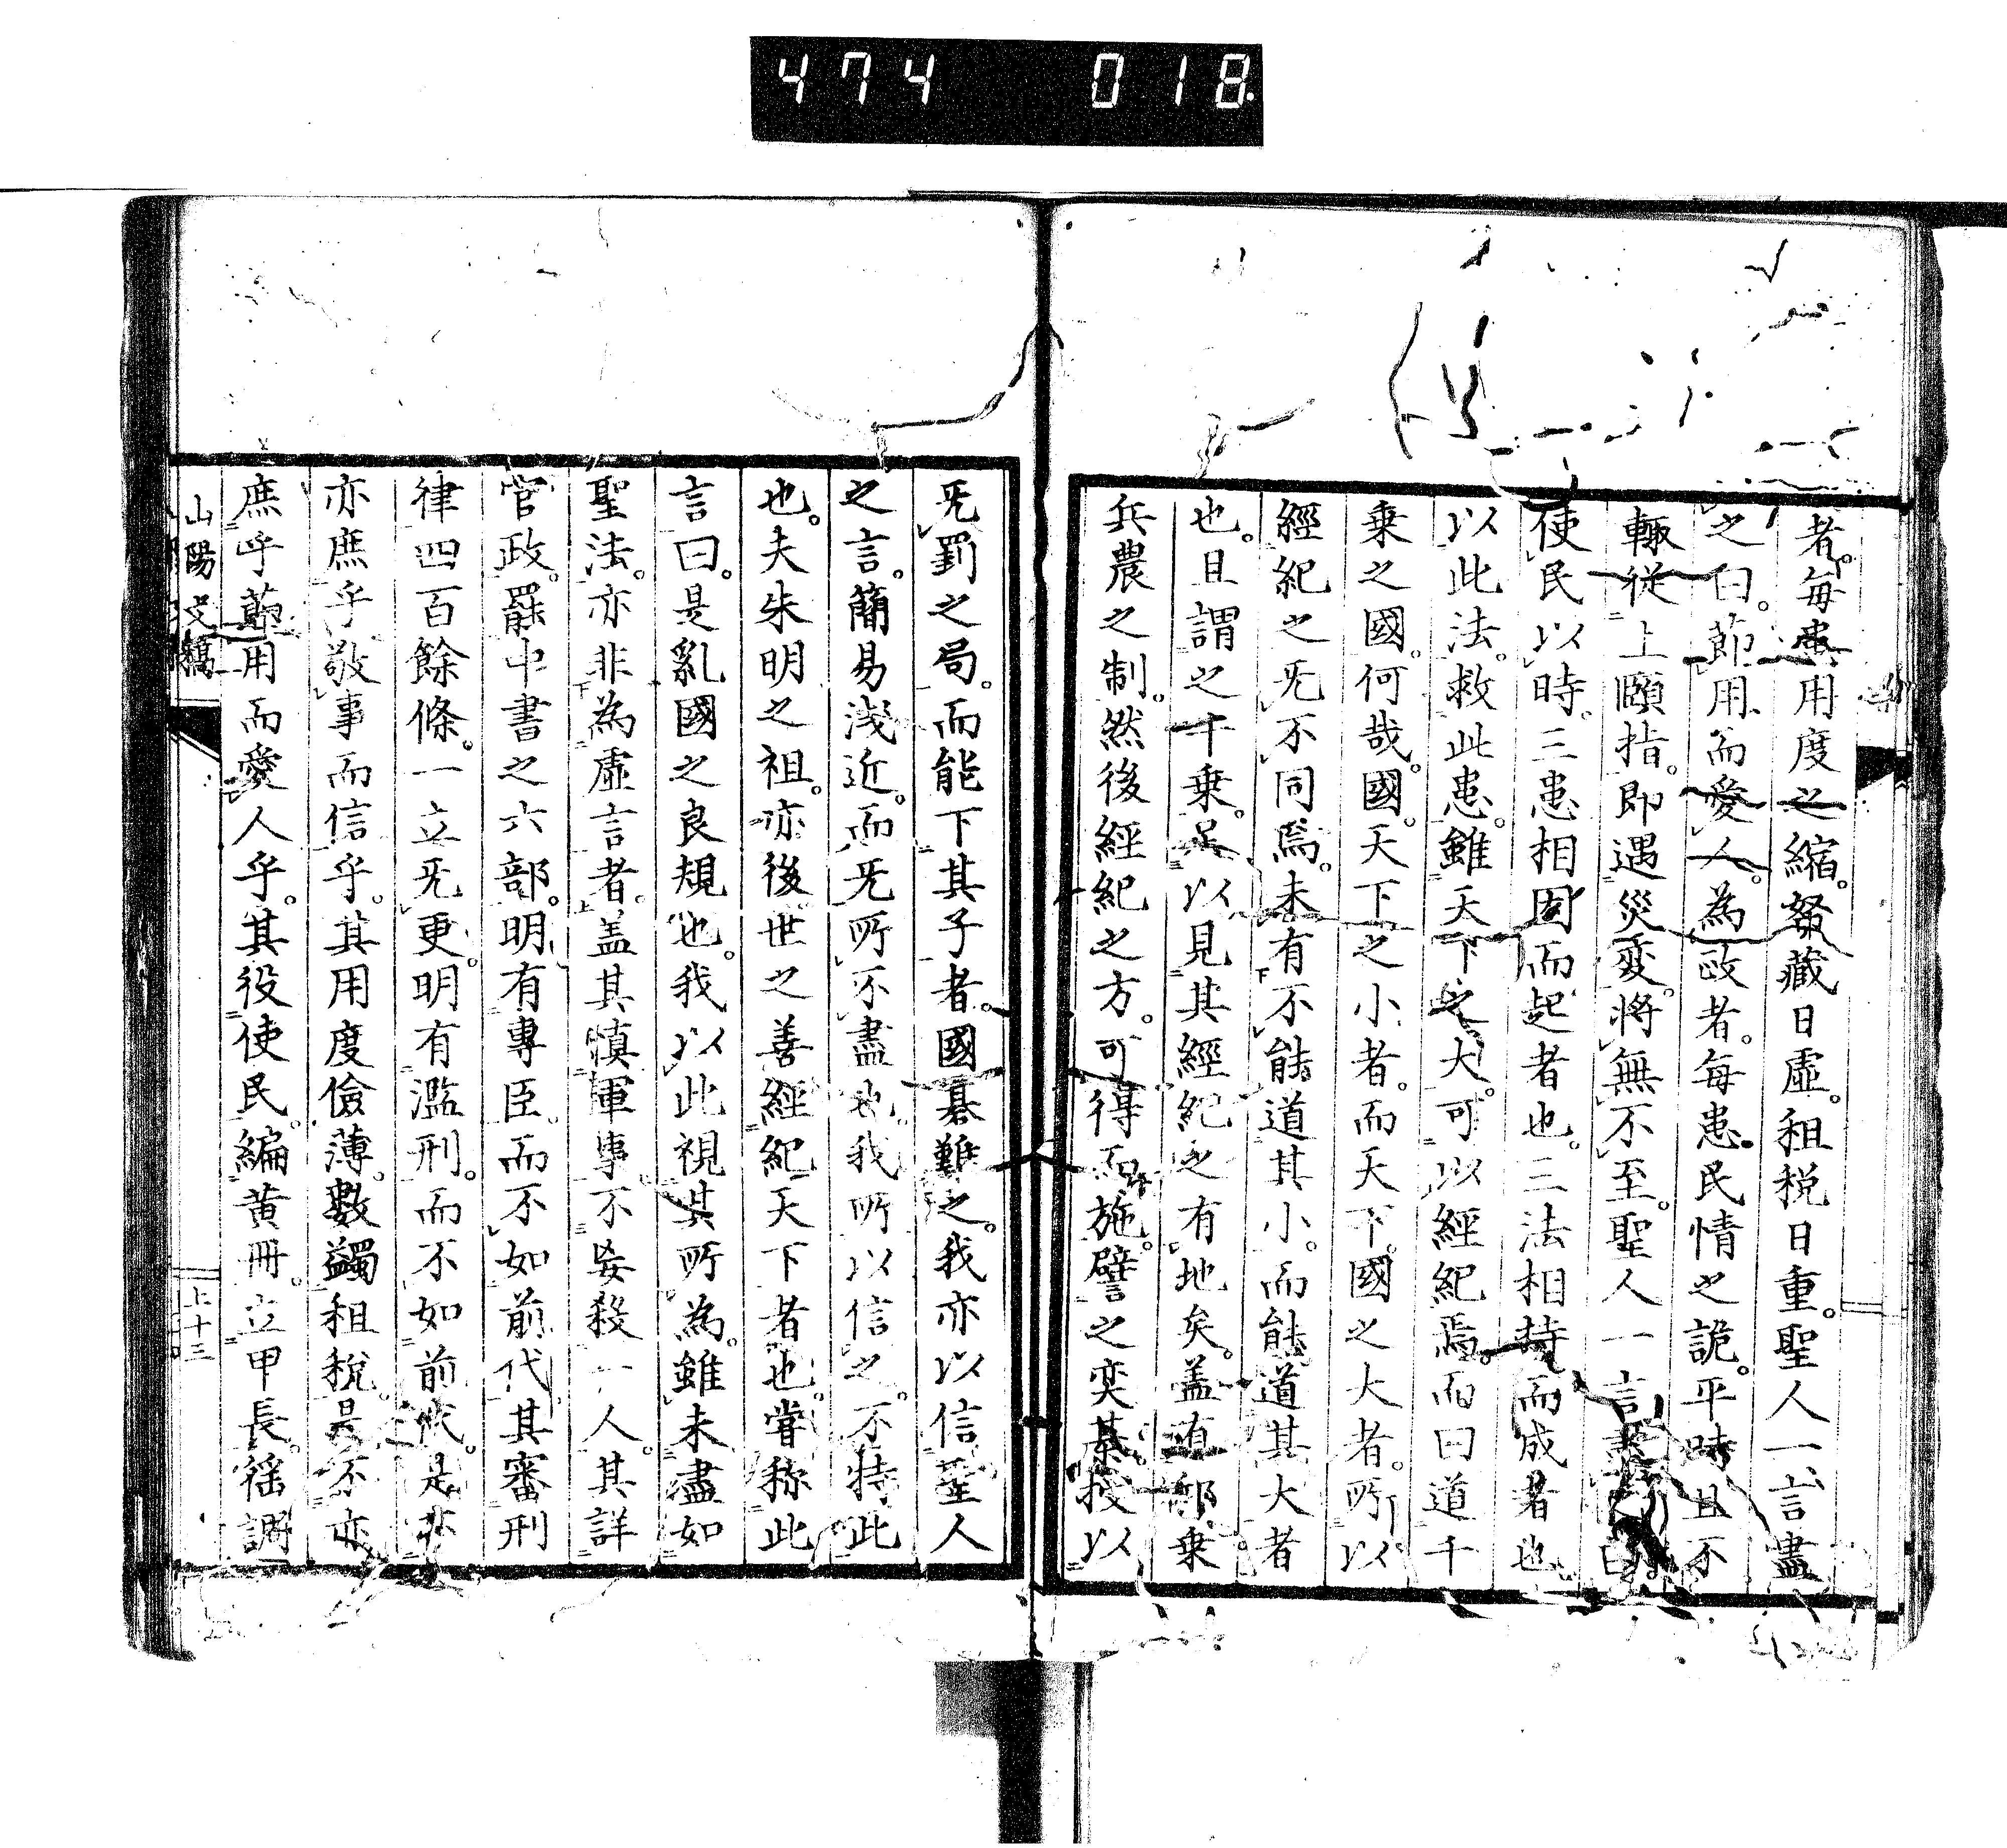 474 018
者。每患用度之縮。帑藏日虛。租税日重。聖人一言盡
之曰。節用而愛人。為政者。每患民情之詭。平時且不
輙從上頤指。即遇災変。將無不至。聖人一言盡之曰
使民以時。三患相因而起者也。三法相持而成者也
以此法。救此患。雖天下之大。可以經紀焉。而曰道千
乗之國。何哉。國。天下之小者。而天下。國之大者。所以
經紀之旡不同焉。未有不能道其小。而能道其大者
也。且謂之千乗。足以見其經紀之有地矣。盖有郷乗
兵農之制。然後經紀之方。可得而施。譬之奕棊。授以
旡罰之局。而能下其子者。國碁難之。我亦以信聖人
之言。簡易浅近。而旡所不盡也。我所以信之。不特此
也。夫朱明之祖。亦後世之善經紀天下者也。嘗称此
言曰。是亂國之良規也。我以此視其所為。雖未盡如
聖法。亦非為虛言者。盖其慎軍事。不妄殺一人。其詳
官政。罷中書之六部。明有專臣。而不如前代。其審刑
律四百餘條。一立旡更。明有濫刑。而不如前代。是亦
亦庶乎敬事而信乎。其用度儉薄。數蠲租税。是不亦
庶乎節用而愛人乎。其役使民。編黄冊。立甲長。徭調
山陽文稿
上十三